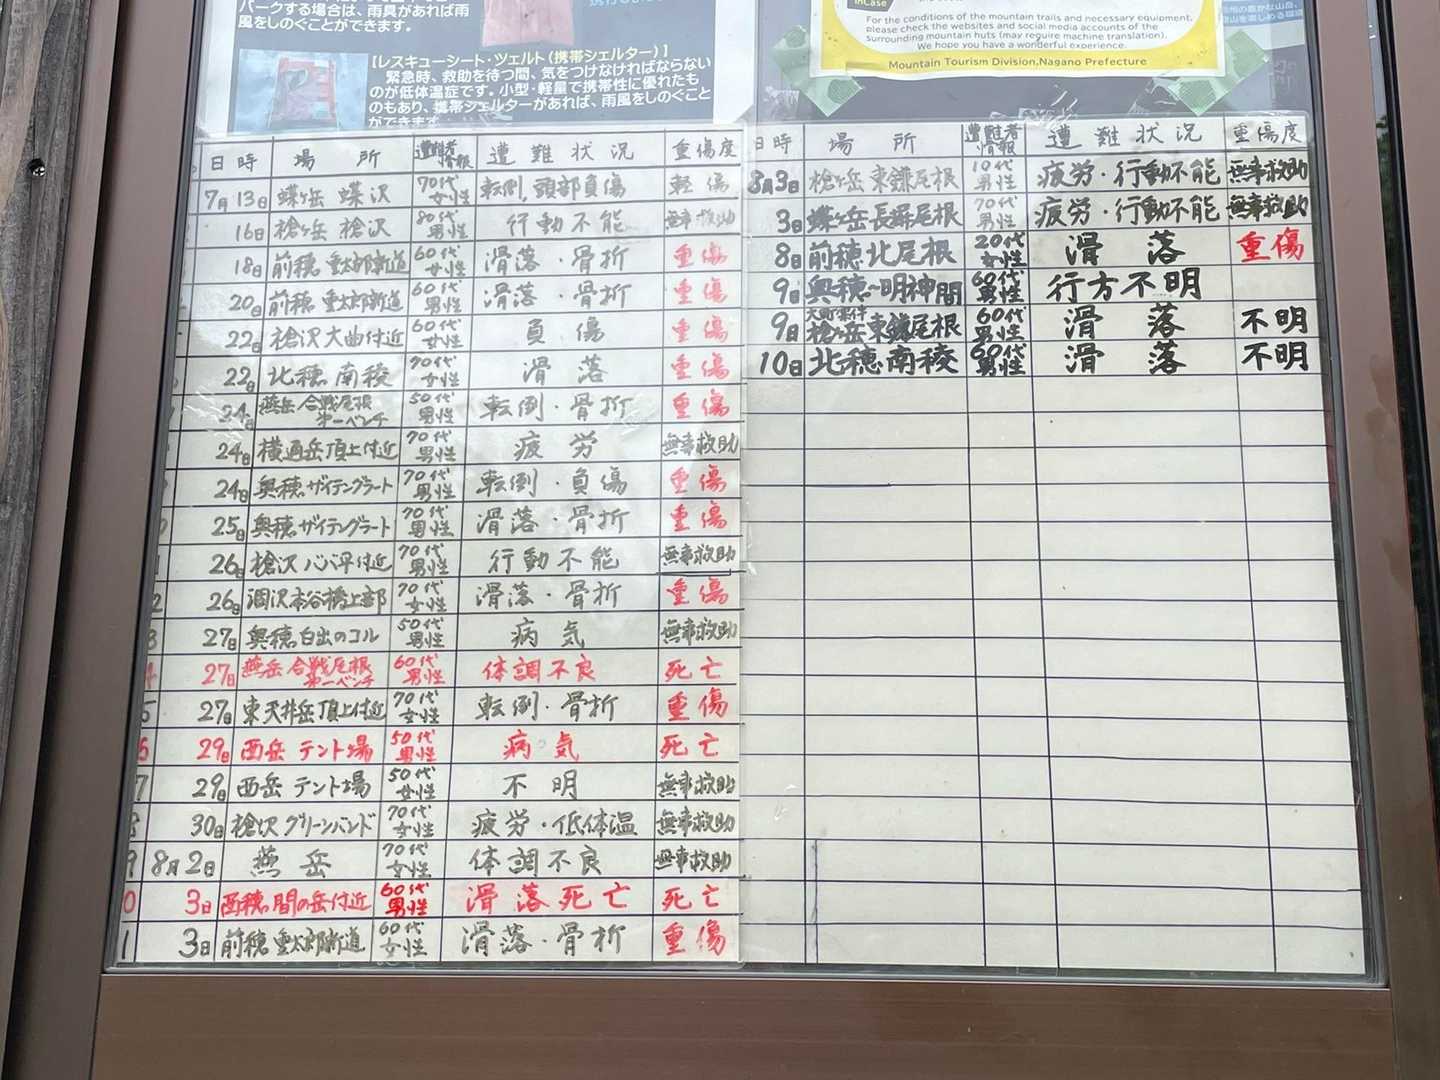 パークする場合は、雨具があれば雨
風をしのぐことができます。
【レスキューシート・ツェルト(携帯シェルター)】
緊急時、救助を待つ間、気をつけなければならない
のが低体温症です。小型・軽量で携帯性に優れたも
のもあり、携帯シェルターがあれば、雨風をしのぐこと
ができます。
InCase
For the conditions of the mountain trails and necessary equipment,
please check the websites and social media accounts of the
surrounding mountain huts (may require machine translation).
We hope you have a wonderful experience.
Mountain Tourism Division,Nagano Prefecture
日時 場所 遭難者情報 遭難状況 重傷度
7月13日 蝶ヶ岳 蝶沢 70代女性 転倒,頭部負傷 軽傷
16日 槍ヶ岳 槍沢 80代男性 行動不能 無事救助
18日 前穂 重太郎新道 60代女性 滑落・骨折 重傷
20日 前穂 重太郎新道 60代男性 滑落・骨折 重傷
22日 槍沢大曲付近 60代女性 負傷 重傷
22日 北穂南稜 70代女性 滑落 重傷
24日 燕岳 合戦尾根第一ベンチ 50代男性 転倒・骨折 重傷
24日 横通岳頂上付近 70代男性 疲労 無事救助
24日 奥穂ザイテングラート 70代男性 転倒・負傷 重傷
25日 奥穂ザイテングラート 70代男性 滑落・骨折 重傷
26日 槍沢ババ平付近 70代男性 行動不能 無事救助
26日 涸沢本谷橋上部 70代女性 滑落・骨折 重傷
27日 奥穂白出のコル 50代男性 病気 無事救助
27日 燕岳 合戦尾根第一ベンチ 60代男性 体調不良 死亡
27日 東天井岳頂上付近 70代女性 転倒・骨折 重傷
29日 西岳 テント場 50代男性 病気 死亡
29日 西岳 テント場 50代女性 不明 無事救助
30日 槍沢グリーンバンド 70代女性 疲労・低体温 無事救助
8月2日 燕岳 70代女性 体調不良 無事救助
3日 西穂間の岳付近 60代男性 滑落死亡 死亡
3日 前穂 重太郎新道 60代女性 滑落・骨折 重傷
日時 場所 遭難者情報 遭難状況 重傷度
8月3日 槍ヶ岳 東鎌尾根 10代男性 疲労・行動不能 無事救助
3日 蝶ヶ岳長塀尾根 70代男性 疲労・行動不能 無事救助
8日 前穂北尾根 20代女性 滑落 重傷
9日 奥穂~明神間 60代男性 行方不明
9日 槍ヶ岳東鎌尾根 60代男性 滑落 不明
10日 北穂南稜 60代男性 滑落 不明